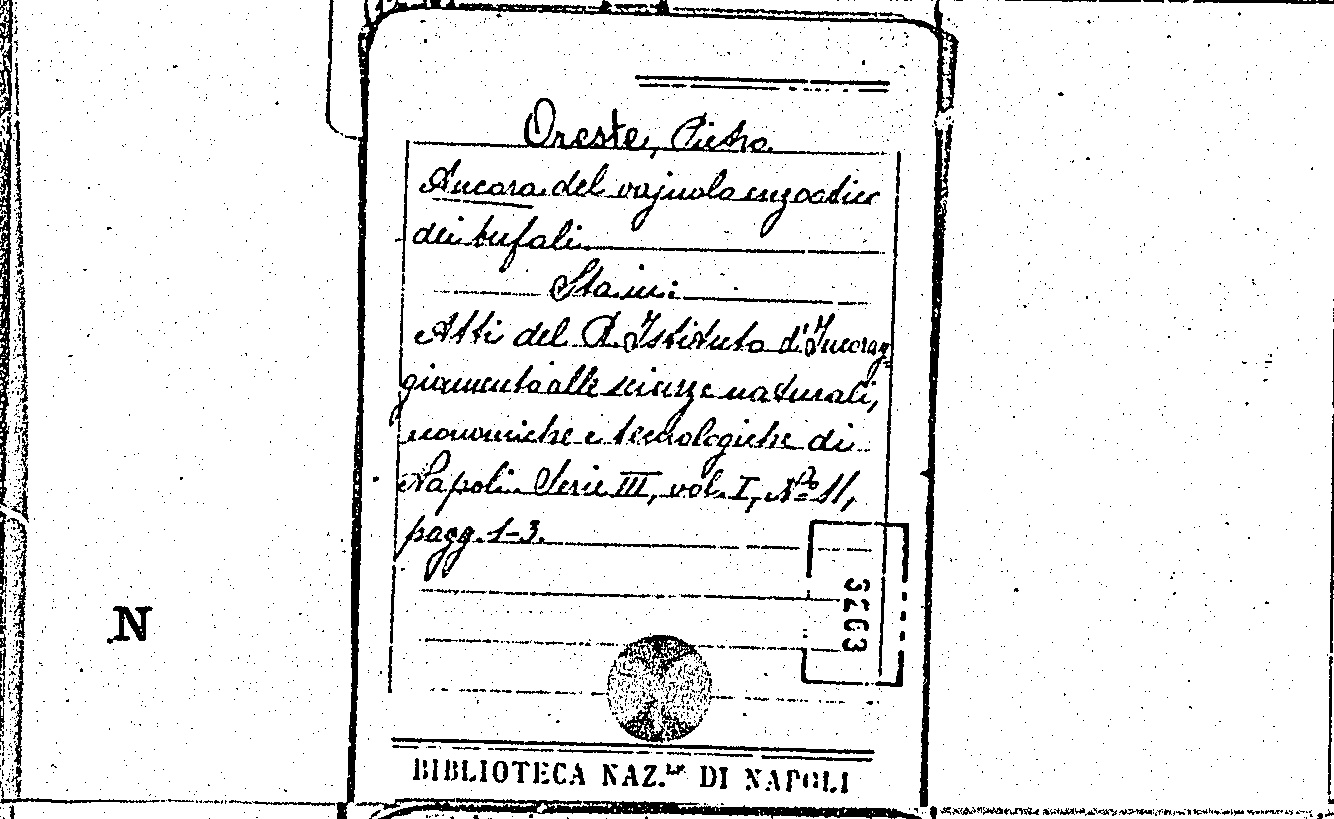 Oreste, Pietro
Ancora del vajuolo enzootico
dei bufali.
Sta in:
Atti del R. Istituto d'Incorag-
giamento alle scienze naturali,
economiche e tecnologiche di
Napoli. Serie III, vol. I, No 11,
pagg. 1-3.
N
BIBLIOTECA NAZ.LE DI NAPOLI